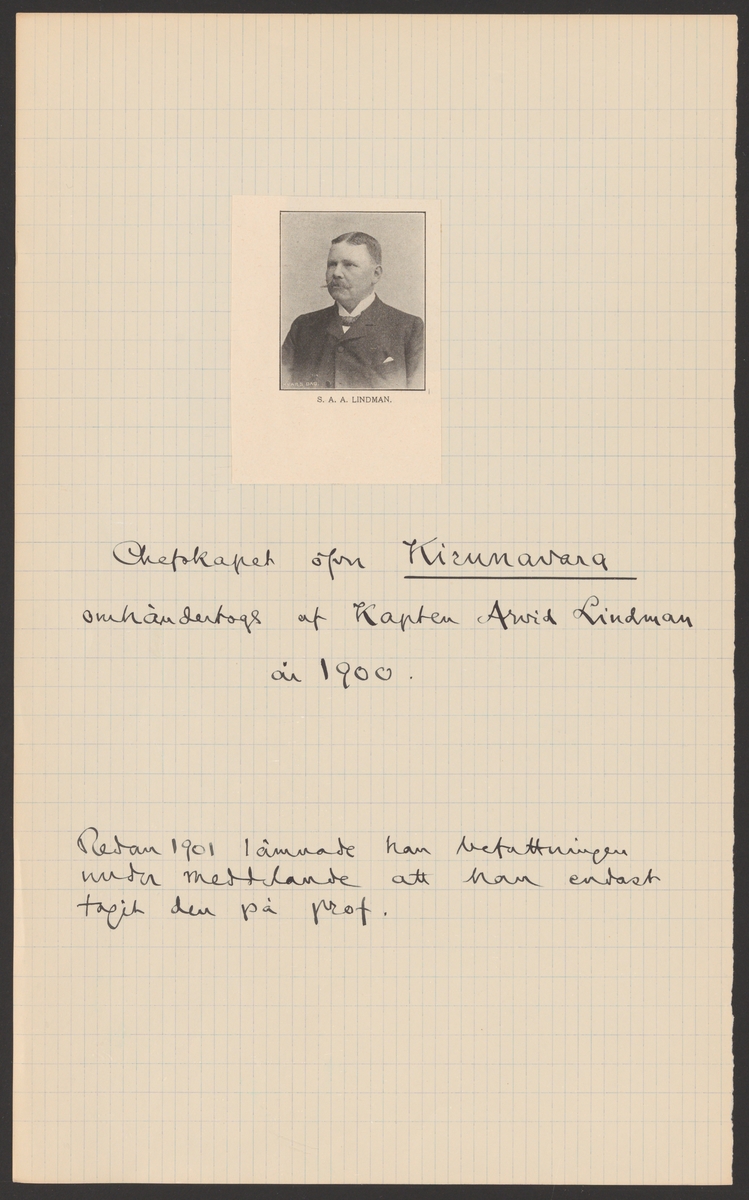 S. A. A. LINDMAN.
Chefskapet öfver Kirunavara
omhändertogs af Kapten Arvid Lindman
år 1900.
Redan 1901 lämnade han befattningen
under meddelande att han endast
tagit den på prof.